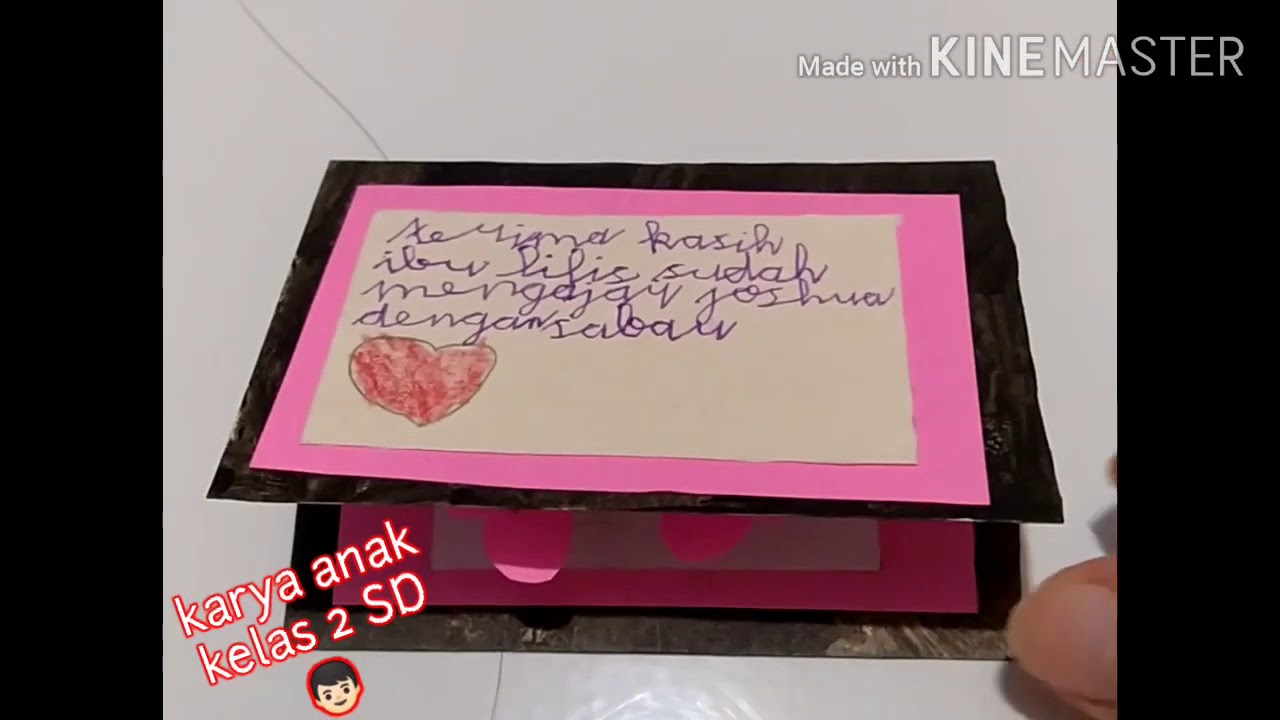 Made with KINEMASTER
terima kasih
ibu lilis sudah
mengajar joshua
dengan sabar
karya anak
kelas 2 SD